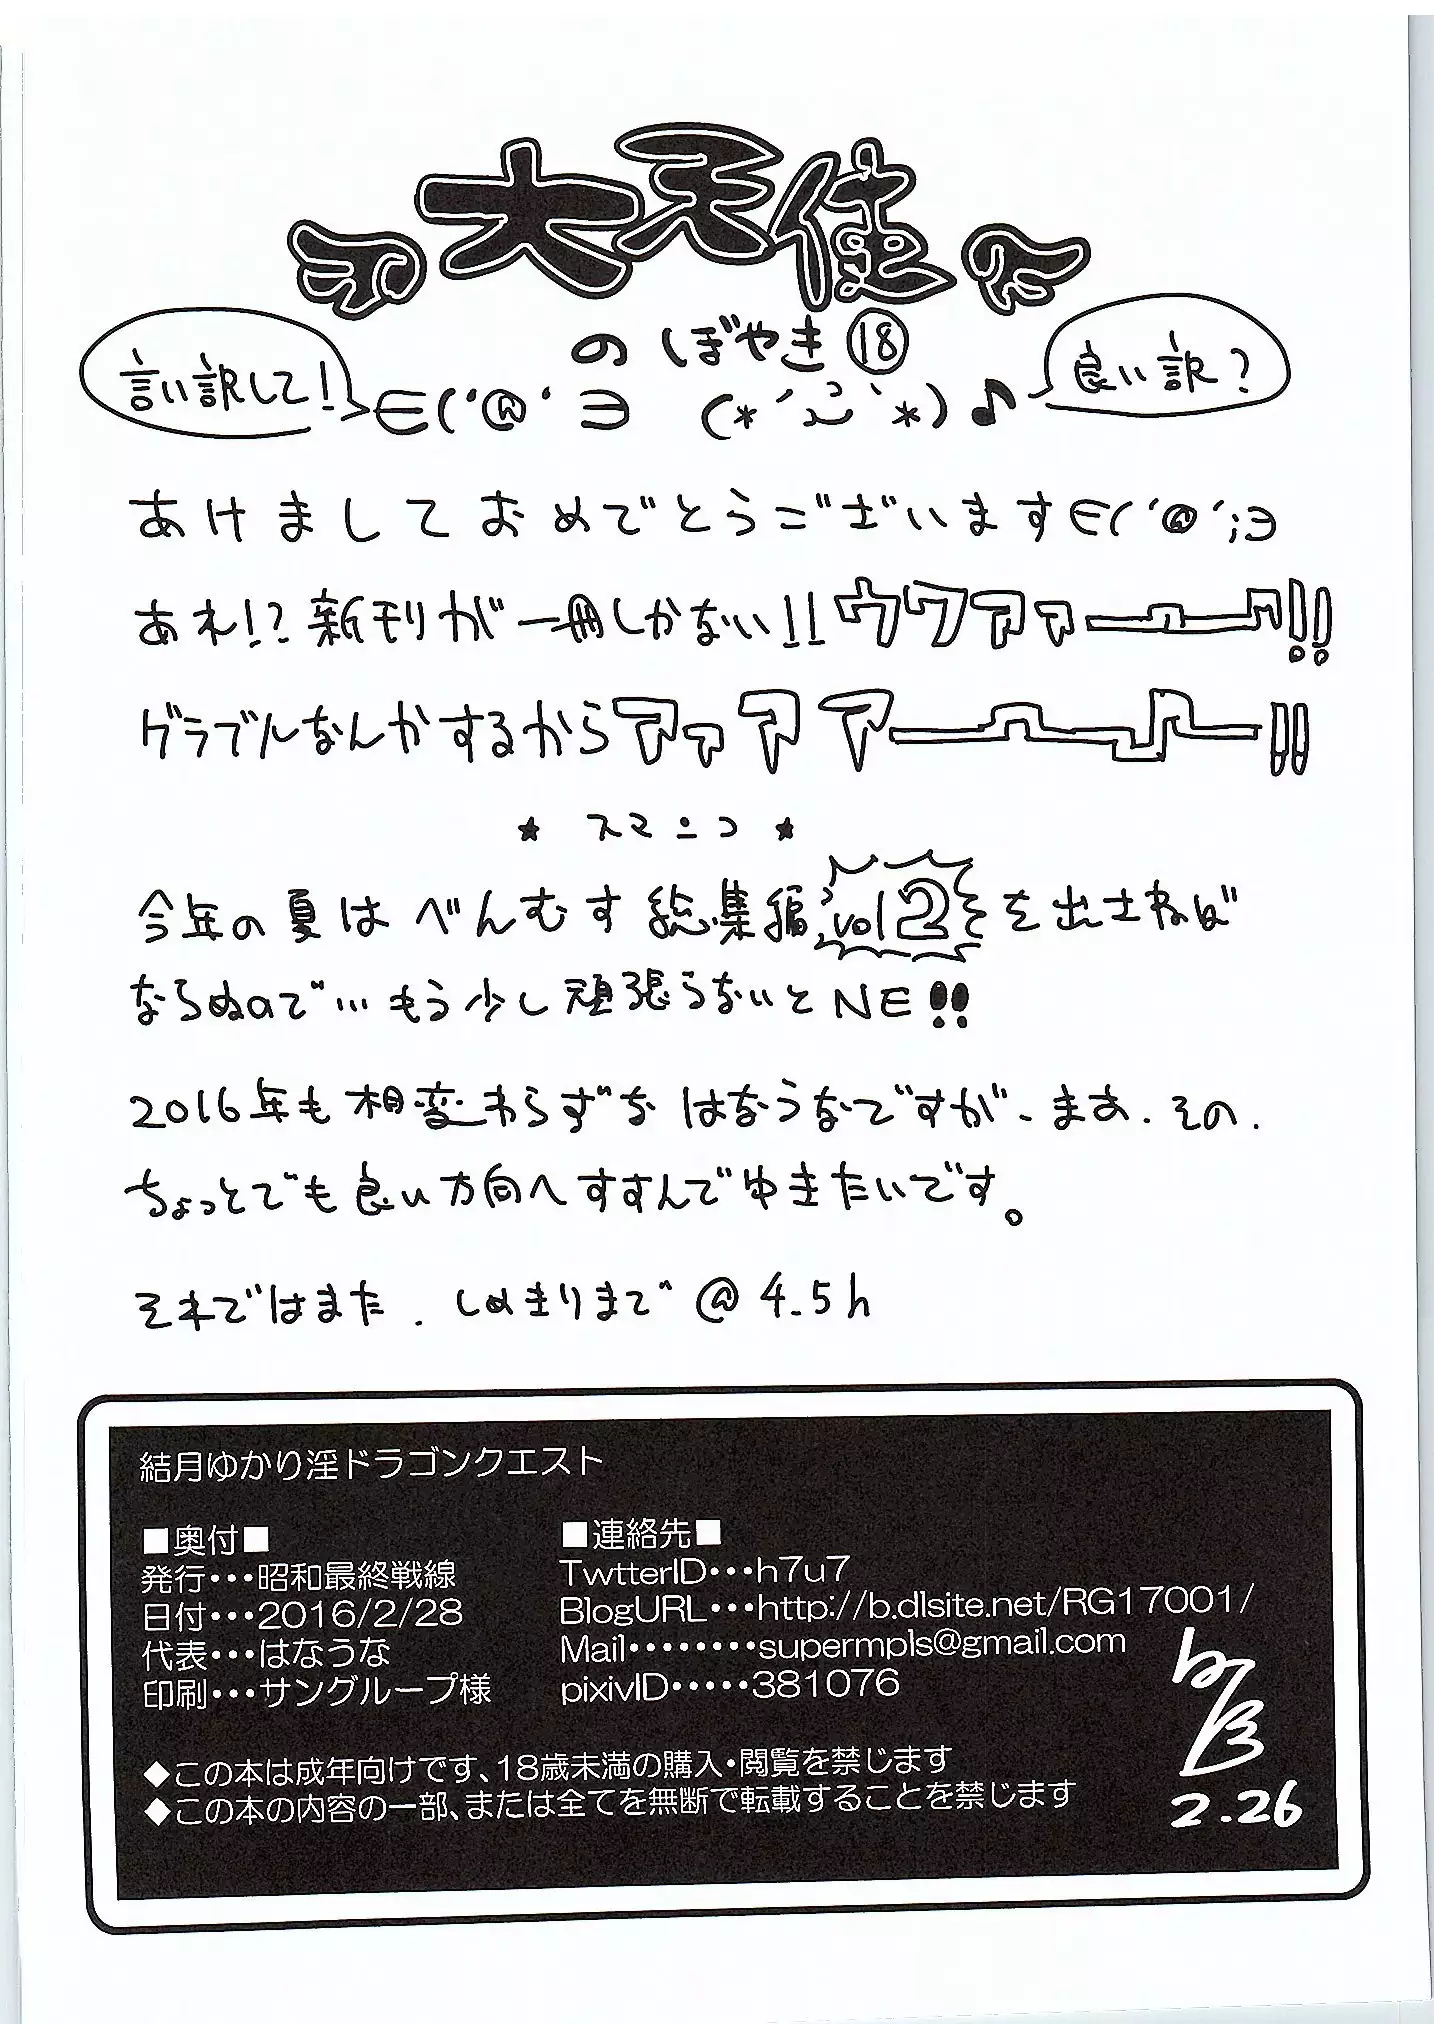 大天使
のぼやき⑱
言い訳して!
∈('@'∋ (*´ω`*)♪
良い訳?
あけましておめでとうございます∈('@';∋
あれ!?新刊が一冊しかない!!ウワアァーーーッ!!
グラブルなんかするからアァアアーーーーッ!!
★ スマニコ ★
今年の夏はべんむす総集編vol2を出さねば
ならぬので…もう少し頑張らないとNE!!
2016年も相変わらずなはなうなですが、まあ、その、
ちょっとでも良い方向へすすんでゆきたいです。
それではまた、しめきりまで@4.5h
結月ゆかり淫ドラゴンクエスト
■奥付■
発行・・・昭和最終戦線
日付・・・2016/2/28
代表・・・はなうな
印刷・・・サングループ様
■連絡先■
TwtterID・・・h7u7
BlogURL・・・http://b.dlsite.net/RG17001/
Mail・・・・・・・・supermpls@gmail.com
pixivID・・・・・381076
◆この本は成年向けです、18歳未満の購入・閲覧を禁じます
◆この本の内容の一部、または全てを無断で転載することを禁じます
2.26